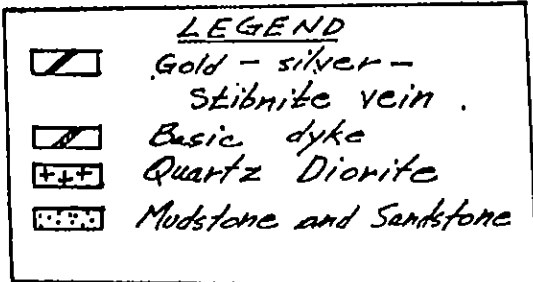 LEGEND
Gold - silver -
Stibnite vein .
Basic dyke
Quartz Diorite
Mudstone and Sandstone